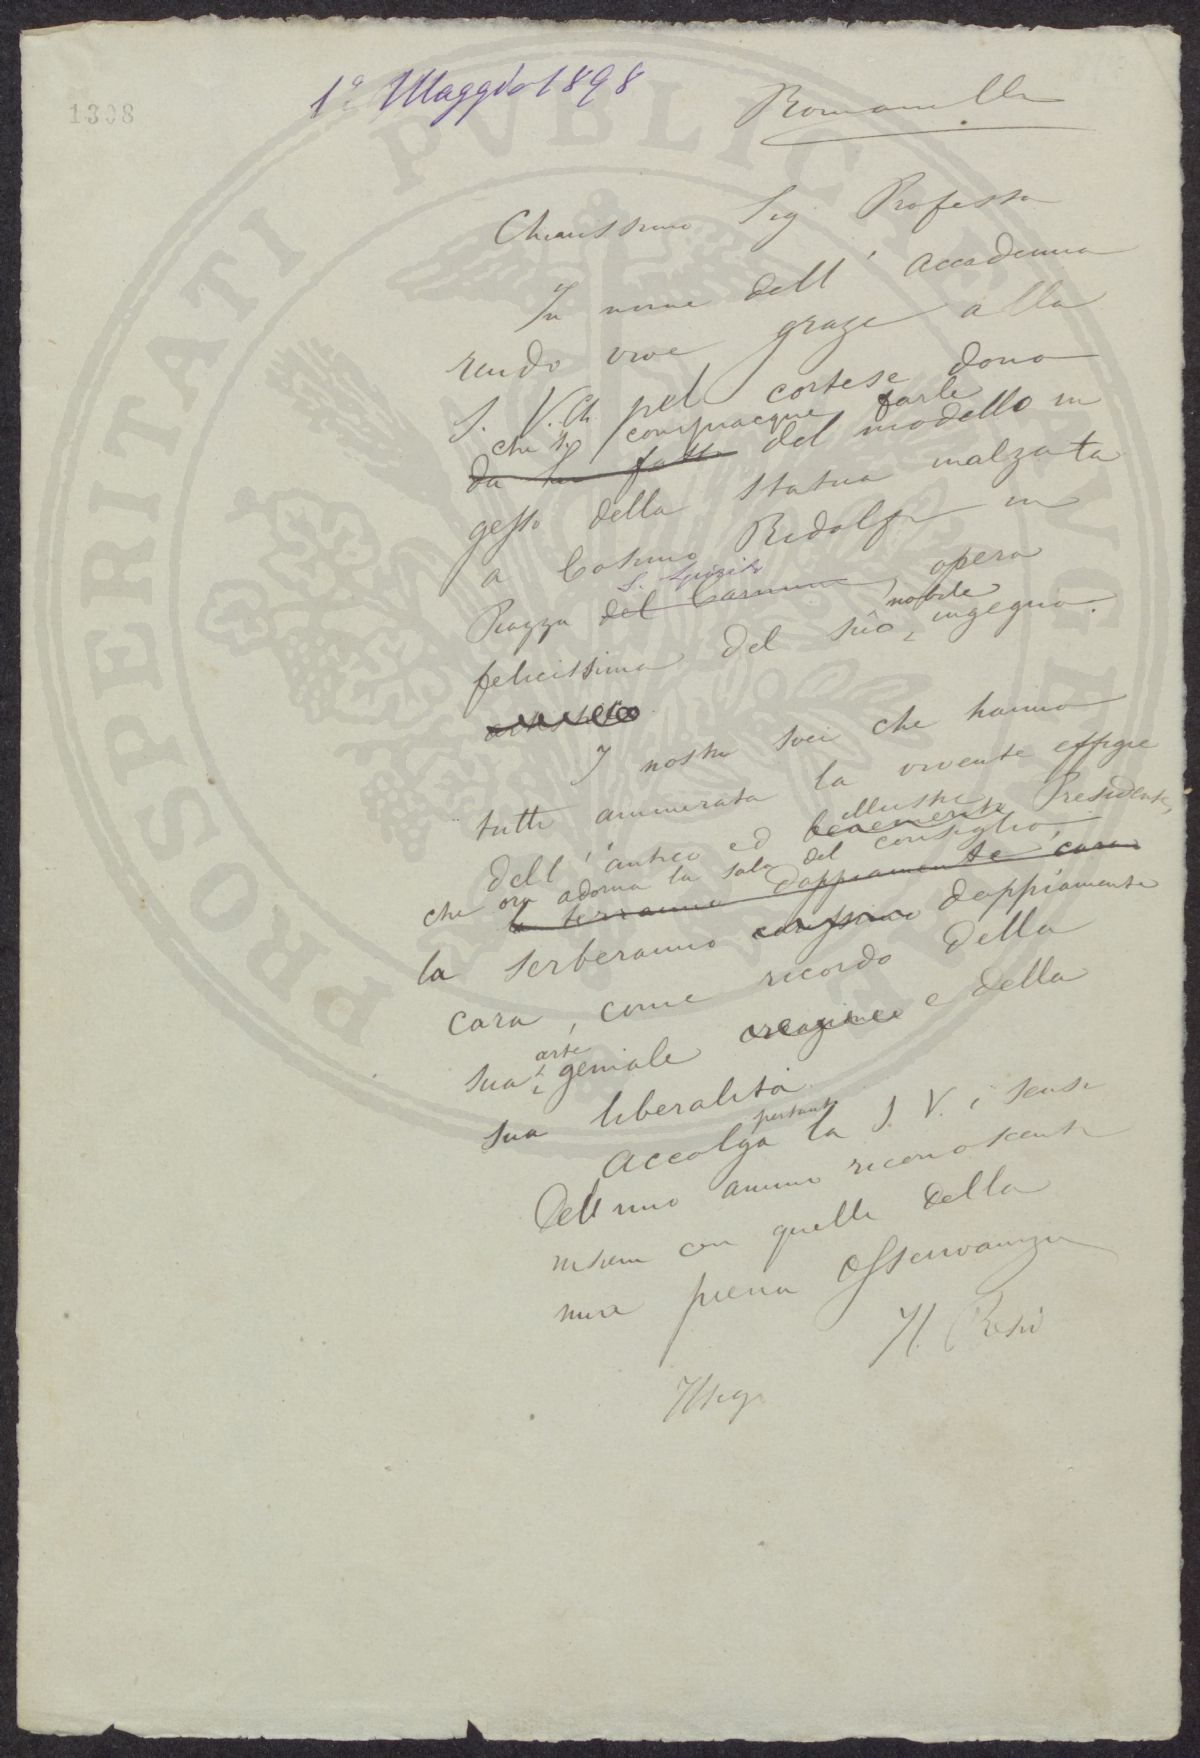 1308
1º Maggio 1898
Romanelli
Chiarissimo Sig. Professore
In nome dell' Accademia
rendo vive grazie alla
S. V. Ch. pel cortese dono
che si compiacque farle
da Lei fatto del modello in
gesso della statua inalzata
a Cosimo Ridolfi in
S. Spirito
Piazza del Carmine, opera
nobile
felicissima del suo ingegno.
I nostri soci che hanno
tutti ammirata la vivente effigie
illustre
dell' antico ed benemerito Presidente,
che ora adorna la sala del consiglio
la terranno doppiamente cara
la serberanno carissima doppiamente
cara, come ricordo della
arte
sua geniale e della
sua liberalità
pertanto
Accolga la S. V. i sensi
dell mio animo riconoscente
insieme con quelli della
mia piena osservanza
Il Presid